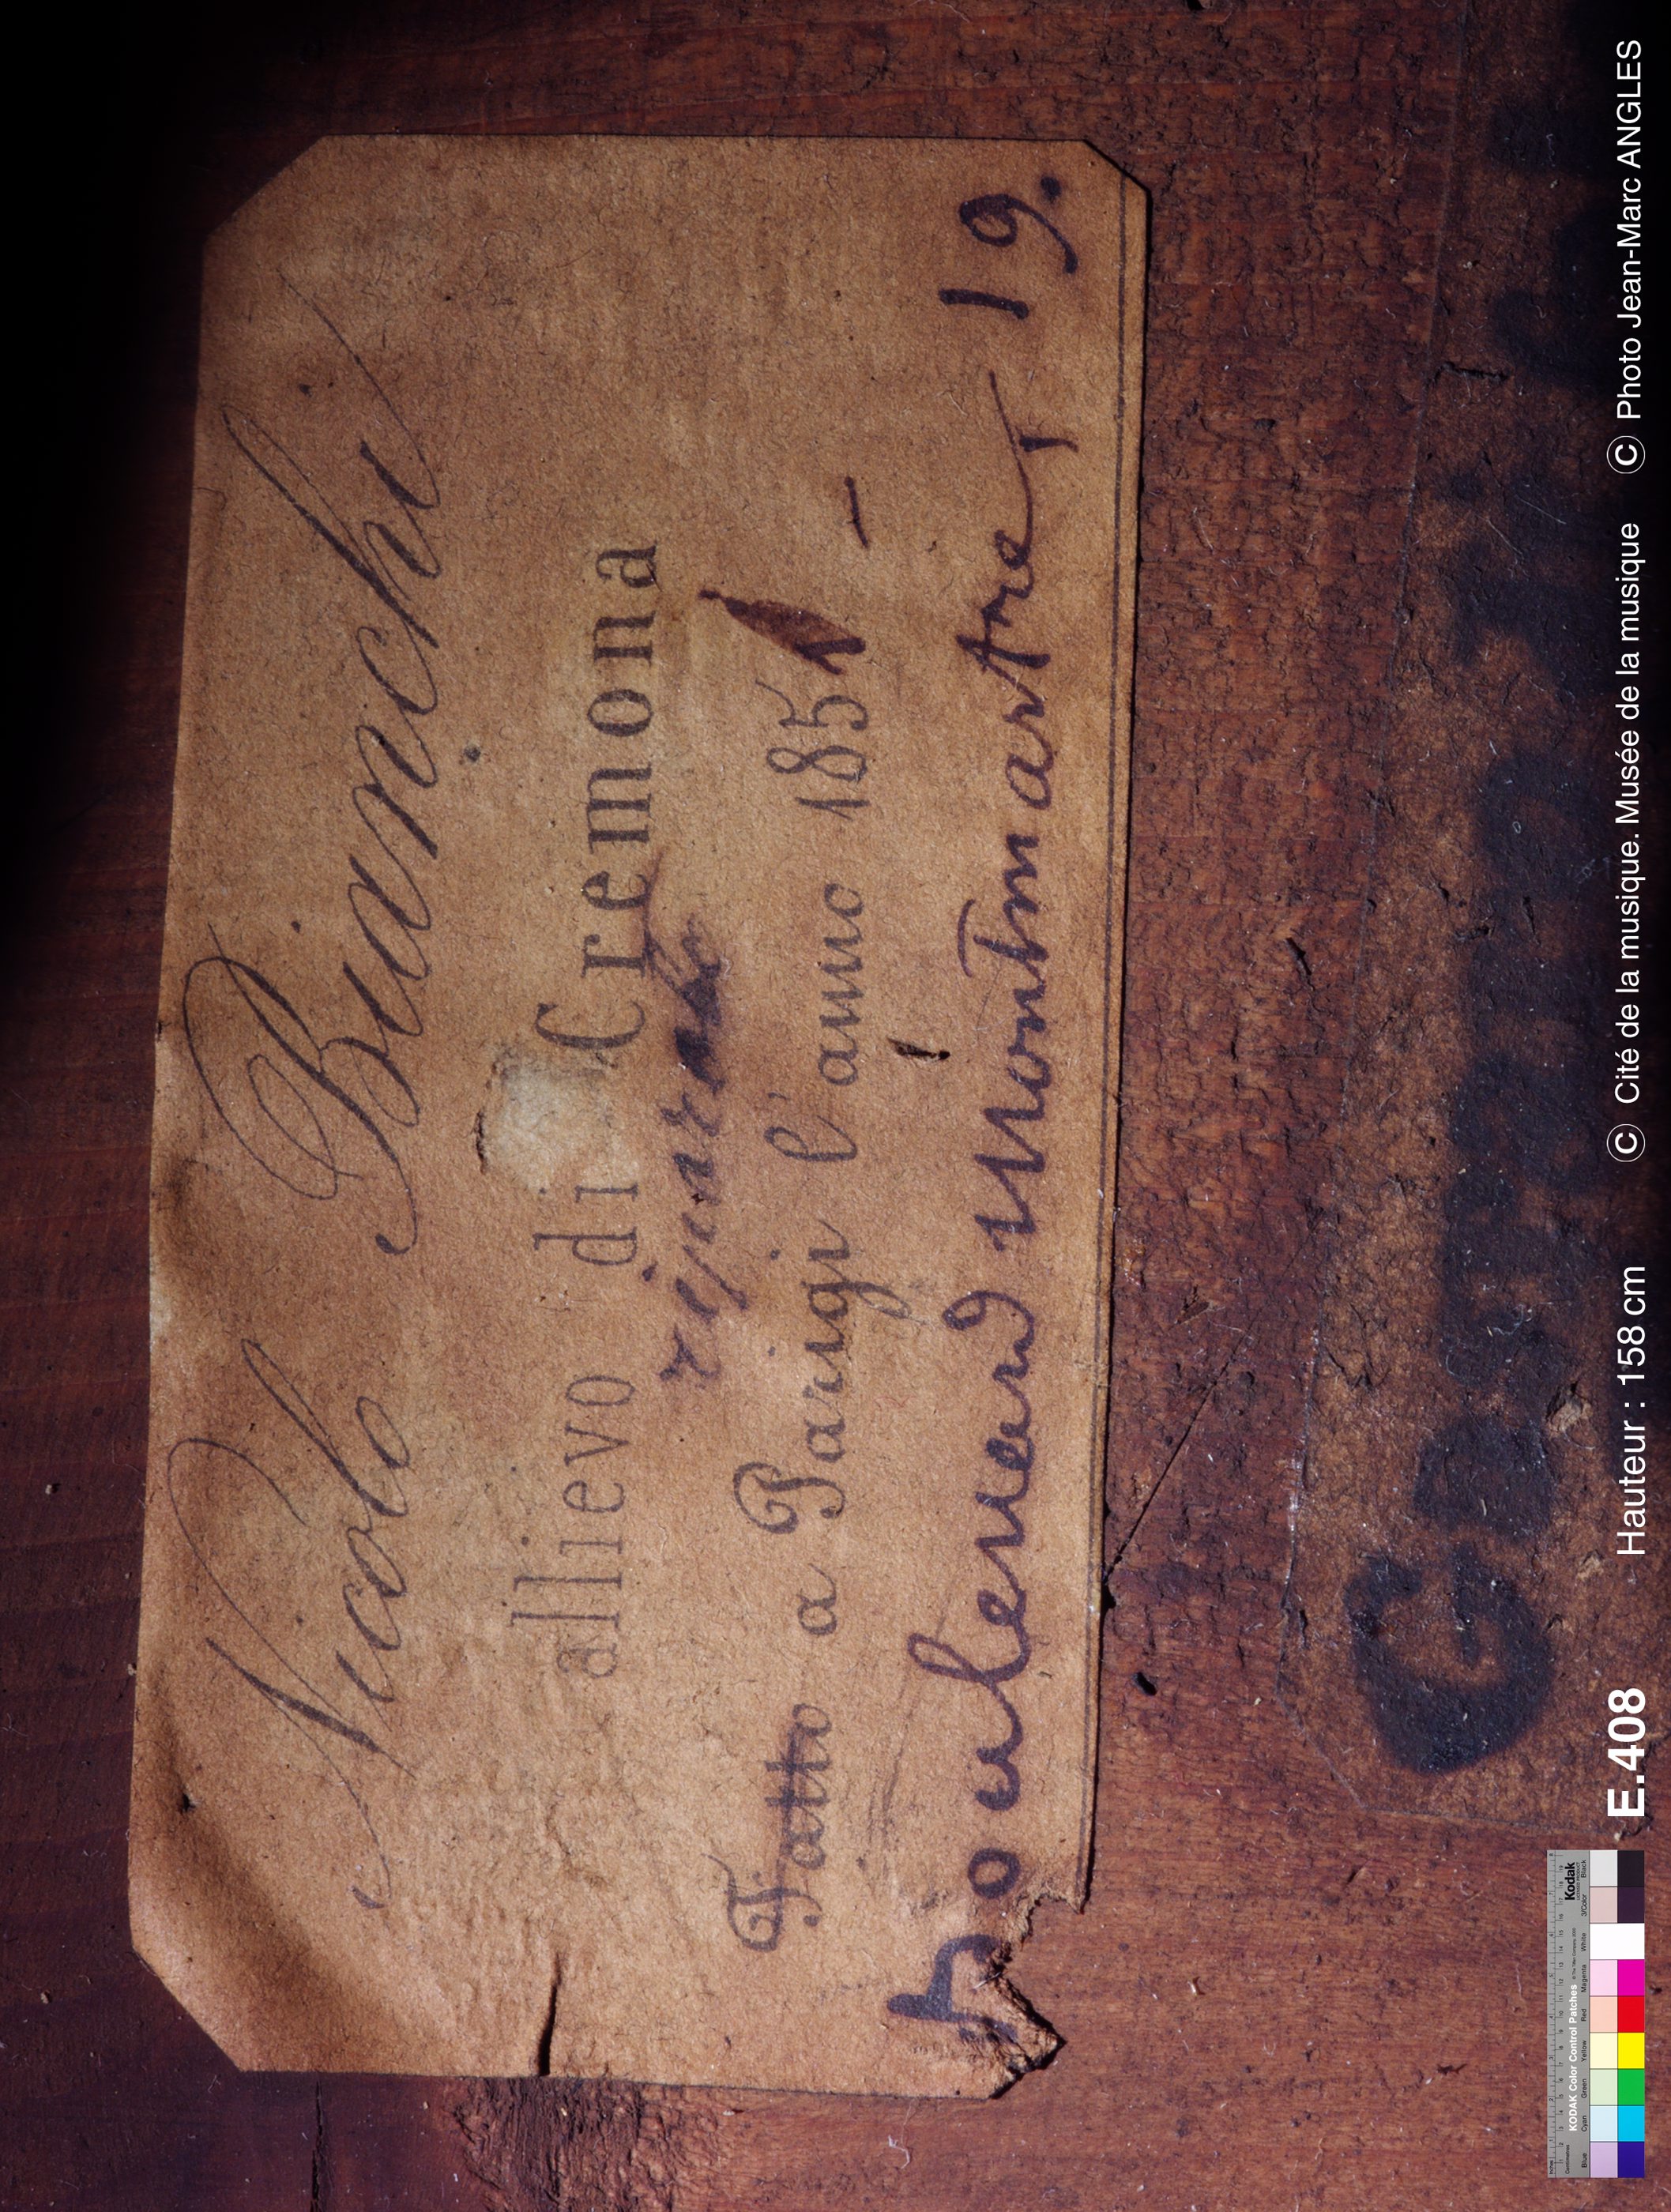 Nicolo Bianchi
allievo di Cremona
réparé
Fatto a Parigi l'anno 185 —
Boulevard montmartre, 19.
E.408 Hauteur : 158 cm © Cité de la musique. Musée de la musique © Photo Jean-Marc ANGLES
KODAK Color Control Patches
Kodak
Blue Cyan Green Yellow Red Magenta White 3/Color Black